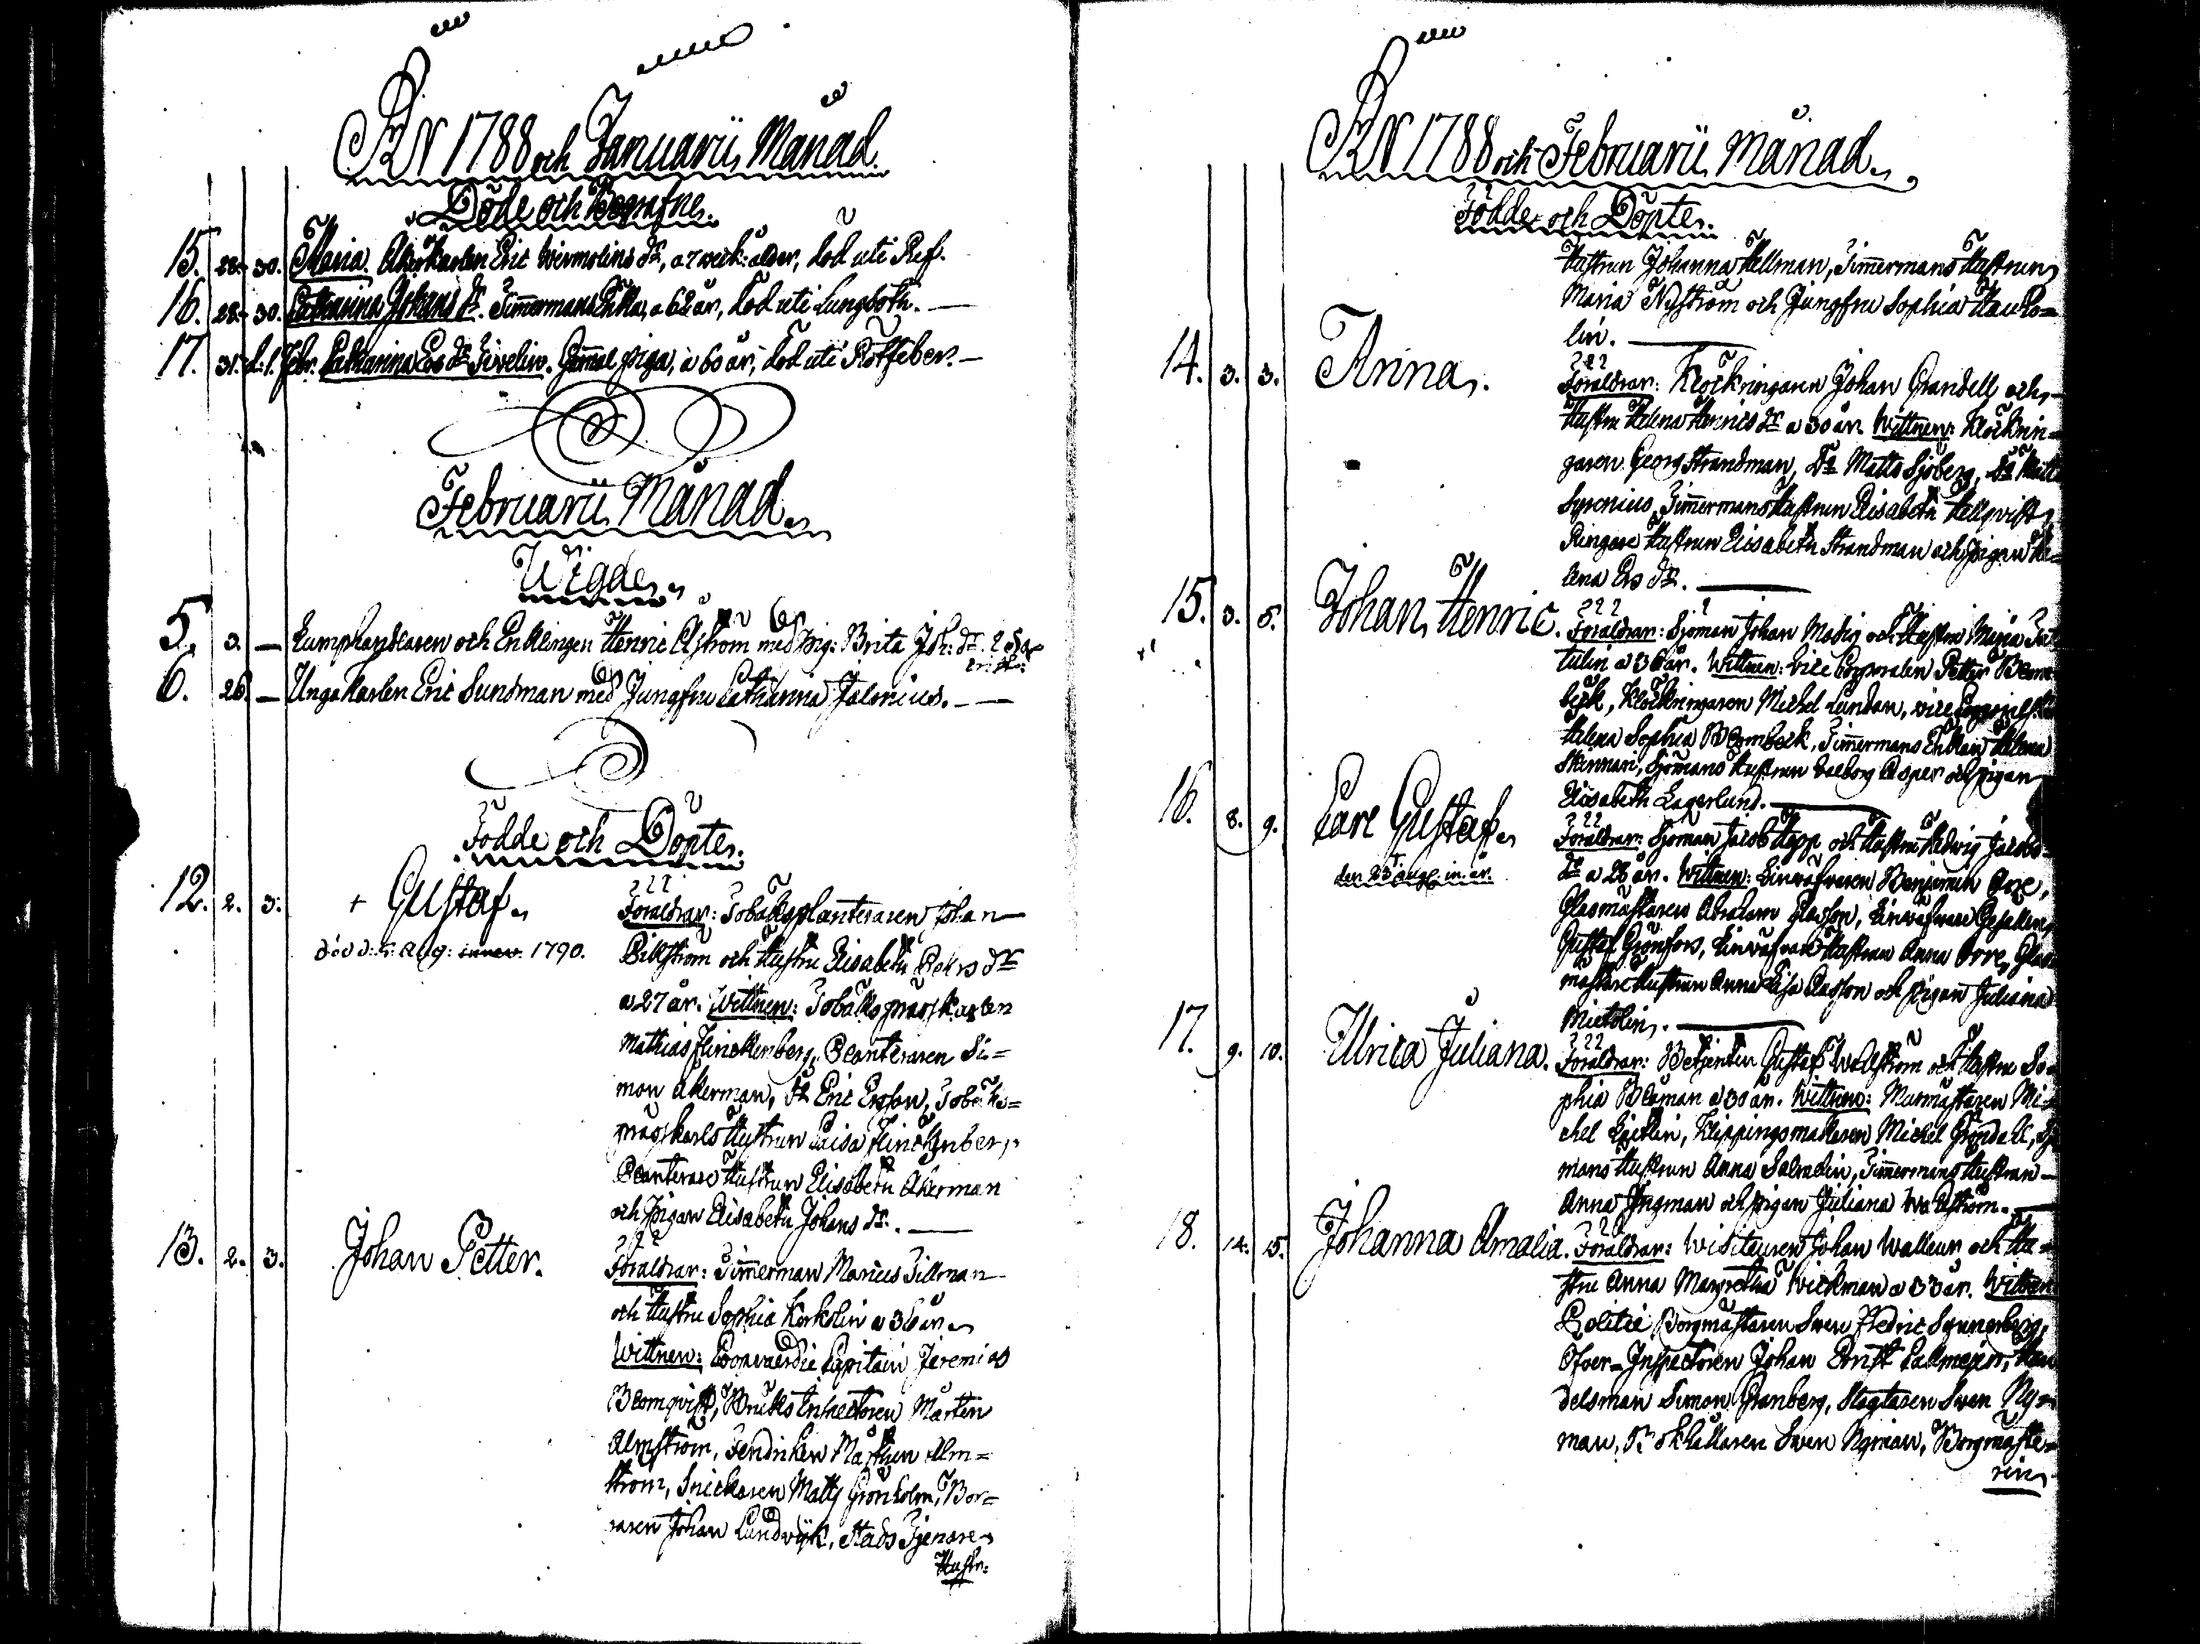 AN 1788 och Januarii Månad.
Döde och Begrafne.
15. 22. 30. Maria. Åkerkarlen Eric Wermelins dr, a 7 weck: ålder, död uti Ref.
16. 22. 30. Catharina Johans dr. Timmermans Enka, a 62 år, död uti Lungsoth.
17. 31. d: 1. Febr. Catharina Ers dr Sivelin. Gammal piga, a 60 år, död uti Rötfeber.
Februarii Månad.
Wigde.
5. 3. — och Enklingen Henric Åström med Pig: Brita Joh: dr.
6. 26. — Unga Karlen Eric Sundman med Jungfru Catharina Jalonius.
Födde och Döpte.
12. 2. 3. + Gustaf. Föräldrar: Tobaksplanteraren Johan
död d: 5. Aug: 1790. Billström och Hustru Elisabeth Pehrs dr
a 27 år. Wittnen: Tobakspraskarlen
Mathias Flinckenberg, Planteraren Si=
mon Åkerman, Dr Eric Ersson, Tobaks=
praskarls Hustrun Caisa Flinckenberg,
Planterare Hustrun Elisabeth Åkerman
och Pigan Elisabeth Johans dr.
13. 2. 3. Johan Petter. Föräldrar: Timmerman Marcus Tillman
och Hustru Sophia Korkolin a 36 år.
Wittnen: Coopvaerdie Capitain Jeremias
Blomqvist, Bruks Inspectoren Mårten
Almström, Fendricken Mårthen Alm=
ström, Snickaren Matts Grönholm, Bor=
raren Johan Lundwijk, Stads Tjenare
Hustr:
AN 1788 och Februarii Månad.
Födde och Döpte.
Hustrun Johanna Hellman, Timmermans Hustrun
Maria Nyström och Jungfru Sophia
lin.
14. 3. 3. Anna. Föräldrar: Klockringaren Johan Grandell och
Hustru Helena Henrics dr a 30 år. Wittnen: Klockrin=
garen Georg Strandman, Dr Matts Sjöberg, Dr
Syrenius, Timmermans Hustrun Elisabeth Hellqvist,
Ringare Hustrun Elisabeth Strandman och pigan He=
lena Ers dr.
15. 3. 5. Johan Henric. Föräldrar: Sjöman Johan Modig och Hustru Maria
tulin a 36 år. Wittnen: Vice Corporalen Petter Blom=
beck, Klockringaren Michel Lundan, vice
Helena Sophia Blombeck, Timmermans Enkan Helena
Stennari, Sjömans Hustrun Walborg Asper och pigan
Elisabeth Lagerlund.
16. 8. 9. Carl Gustaf. Föräldrar: Sjöman Jacob Hopp och Hustru Hedwig Jacobs
den 23 aug. in. år. dr a 28 år. Wittnen: Linwäfwaren Benjamin Orre,
Glasmästaren Abraham Clason, Linwäfware Gesällen
Gustaf Grönfors, Linwäfware Hustrun Anna Orre, Glas
mästare Hustrun Anna Lisa Clason och pigan Juliana
Mietolin.
17. 9. 10. Ulrica Juliana. Föräldrar: Betjenten Gustaf Wallström och Hustru So=
phia Blåman a 30 år. Wittnen: Murmästaren Mi=
chel Löfelin, Klippingsmakaren Michel Gröndahl, Sjö
mans Hustrun Anna Salmelin, Timmermans Hustrun
Anna Ingman och pigan Juliana Wallström.
18. 14. 15. Johanna Amalia. Föräldrar: Visiteuren Johan Walleur och Hu=
stru Anna Margretha Wickman a 33 år. Wittnen:
Politie Borgmästaren Swen Fredric Synnerberg,
Öfver-Inspectoren Johan Ernst Callmejer, Han
delsman Simon Granberg, Slagtaren Swen Ny=
man, Bokhållaren Swen Nyman, Borgmäste=
rin